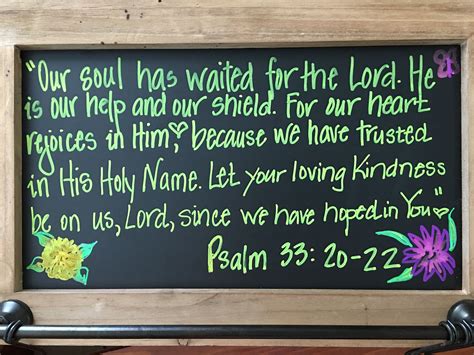 "Our soul has waited for the Lord. He
is our help and our shield. For our heart
rejoices in Him, because we have trusted
in His Holy Name. Let your loving Kindness
be on us, Lord, since we have hoped in You"
Psalm 33:20-22